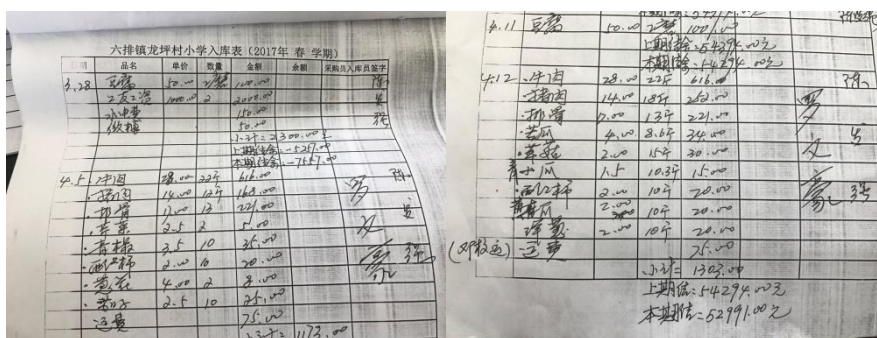 六排镇龙坪村小学入库表(2017年 春 学期)
日期 品名 单价 数量 金额 余额 采购员 入库员签字
3.28 豆腐 50.00 2 100.00
工友工资 1000.00 2 2000.00
水电费 150.00
50.00
小计=2300.00元
上期结余:-5257.00
本期结余:-7557.00
4.5 牛肉 28.00 22斤 616.00
猪肉 14.00 12斤 168.00
排骨 17.00 13 221.00
2.5 2 5.00
青椒 3.5 10 35.00
西红柿 2.00 10 20.00
4.00 2 8.00
茄子 2.5 10 25.00
运费 75.00
小计: 1173.00
4.11 豆腐 50.00 100.00
上期结余:54394.00元
本期结余:54294.00元
4.12 牛肉 28.00 22斤 616.00
猪肉 14.00 18斤 252.00
排骨 17.00 13斤 221.00
苦瓜 4.00 8.5斤 34.00
2.00 15斤 30.00
1.5 10.3斤 15.00
西红柿 2.00 10斤 20.00
瓜 2.00 10斤 20.00
2.00 10斤 20.00
运费 75.00
小计= 1303.00
上期结:54294.00元
本期结:52991.00元